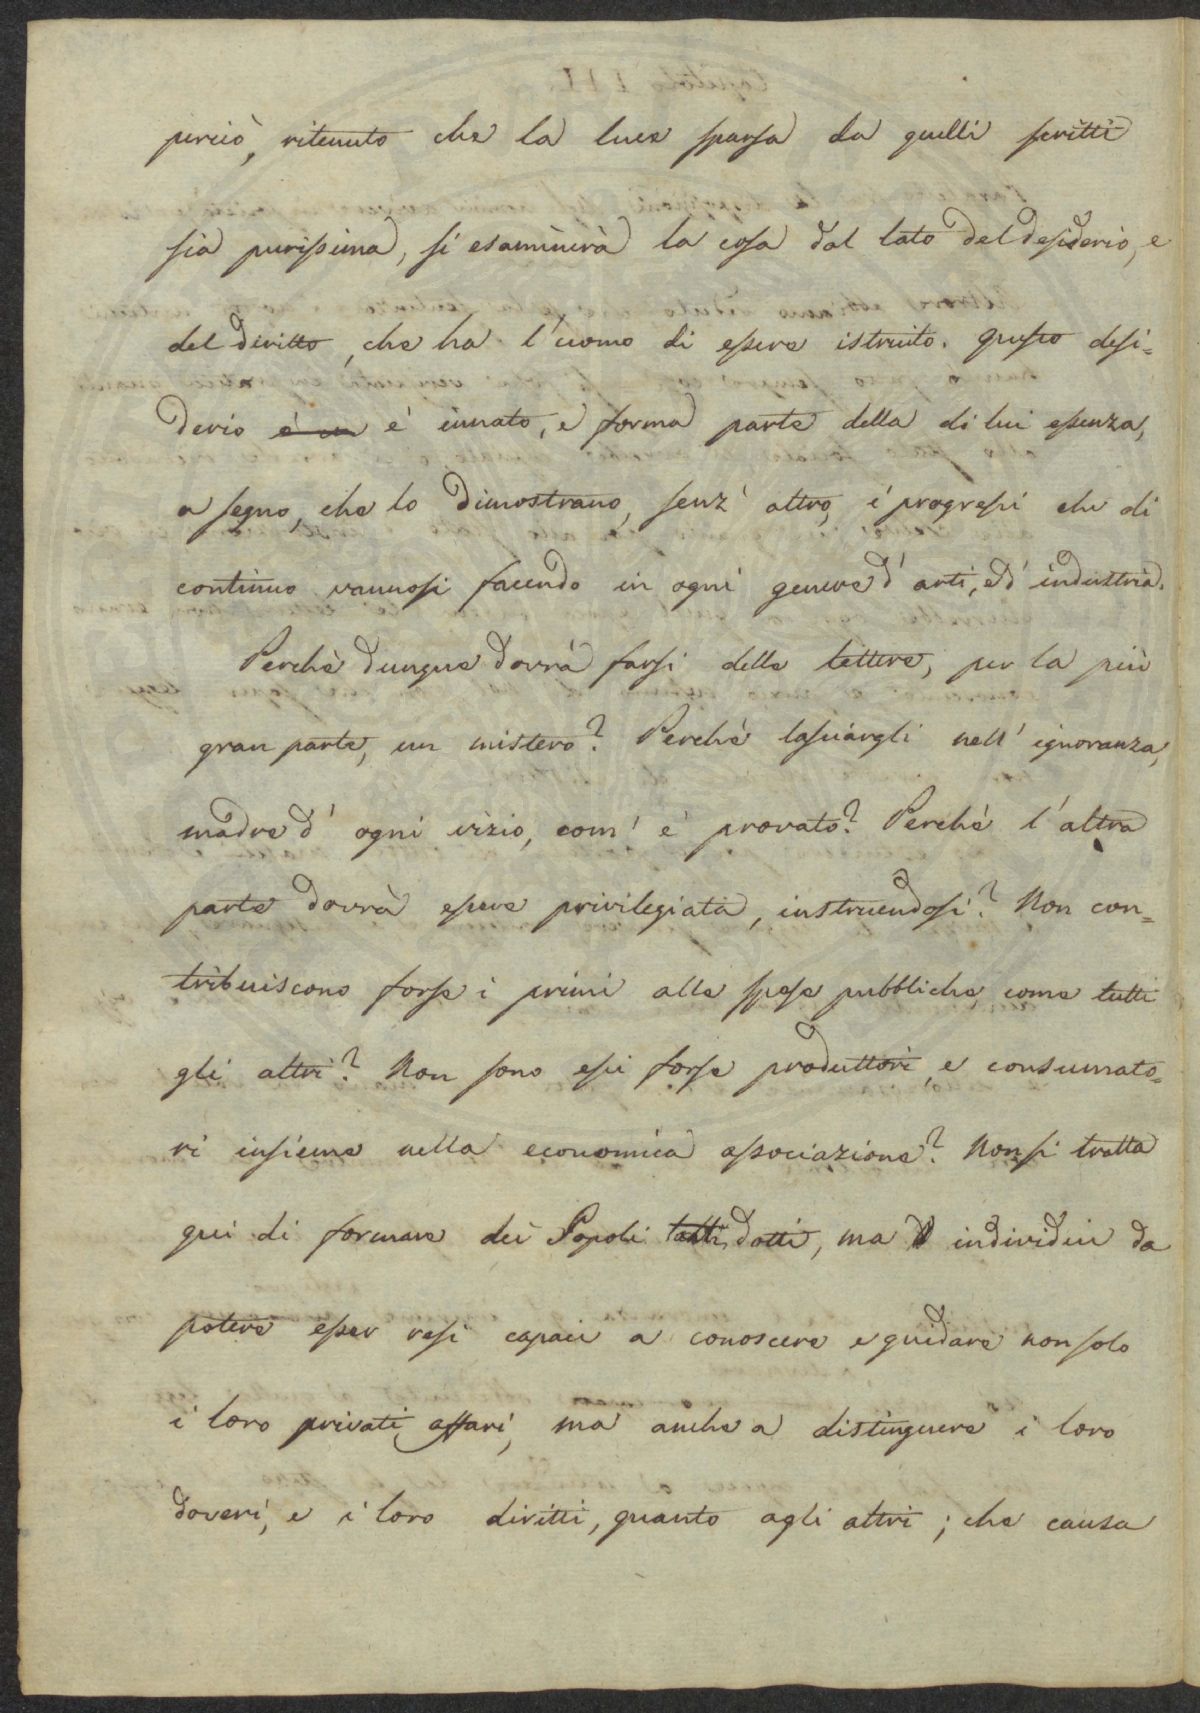 perciò, ritenuto che la luce sparsa da quelli scritti
sia purissima, si esaminerà la cosa dal lato del desiderio, e
del diritto, che ha l'uomo di essere istruito. Questo desi=
derio è un è innato, e forma parte della di lui essenza,
a segno, che lo dimostrano, senz' altro, i progressi che di
continuo vannosi facendo in ogni genere d' arti, ed' industria.
Perchè dunque dovrà farsi delle lettere, per la più
gran parte, un mistero? Perchè lasciargli nell' ignoranza,
madre d' ogni vizio, com' è provato? Perchè l' altra
parte dovrà essere privilegiata, instruendosi? Non con=
tribuiscono forse i primi alle spese pubbliche, come tutti
gli altri? Non sono essi forse produttori, e consumato=
ri insieme nella economica associazione? Non si tratta
qui di formare dei Popoli tutti dotti, ma individui da
potere esser resi capaci a conoscere e guidare non solo
i loro privati affari, ma anche a distinguere i loro
doveri, e i loro diritti, quanto agli altri; che causa